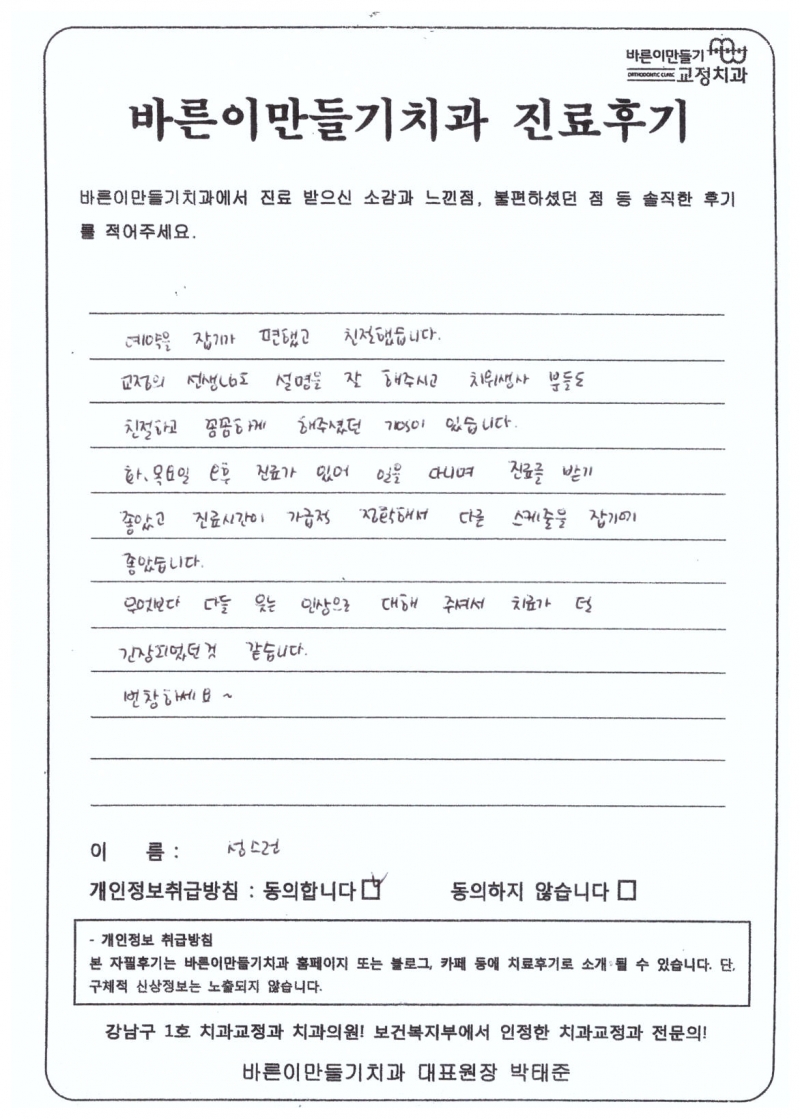 바른이만들기
ORTHODONTIC CLINIC 교정치과
바른이만들기치과 진료후기
바른이만들기치과에서 진료 받으신 소감과 느낀점, 불편하셨던 점 등 솔직한 후기
를 적어주세요.
예약을 잡기가 편했고 친절했습니다.
교정의 선생님도 설명을 잘 해주시고 치위생사 분들도
친절하고 꼼꼼하게 해주셨던 기억이 있습니다.
화, 목요일 오후 진료가 있어 일을 다니며 진료를 받기
좋았고 진료시간이 가급적 정확해서 다른 스케줄을 잡기에
좋았습니다.
무엇보다 다들 웃는 인상으로 대해 주셔서 치료가 덜
긴장되었던것 같습니다.
번창하세요~
이 름 :
개인정보취급방침 : 동의합니다 동의하지 않습니다
- 개인정보 취급방침
본 자필후기는 바른이만들기치과 홈페이지 또는 블로그, 카페 등에 치료후기로 소개 될 수 있습니다. 단,
구체적 신상정보는 노출되지 않습니다.
강남구 1호 치과교정과 치과의원! 보건복지부에서 인정한 치과교정과 전문의!
바른이만들기치과 대표원장 박태준